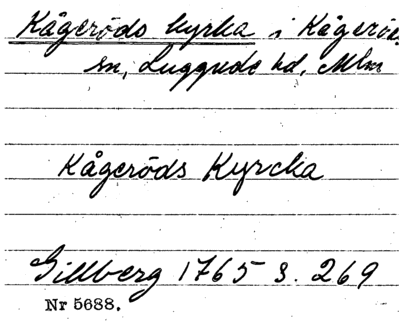 Kågeröds kyrka i Kågerö
sn, Luggude hd, Mlm
Kågeröds Kyrcka
Gillberg 1765 s. 269
Nr 5688.